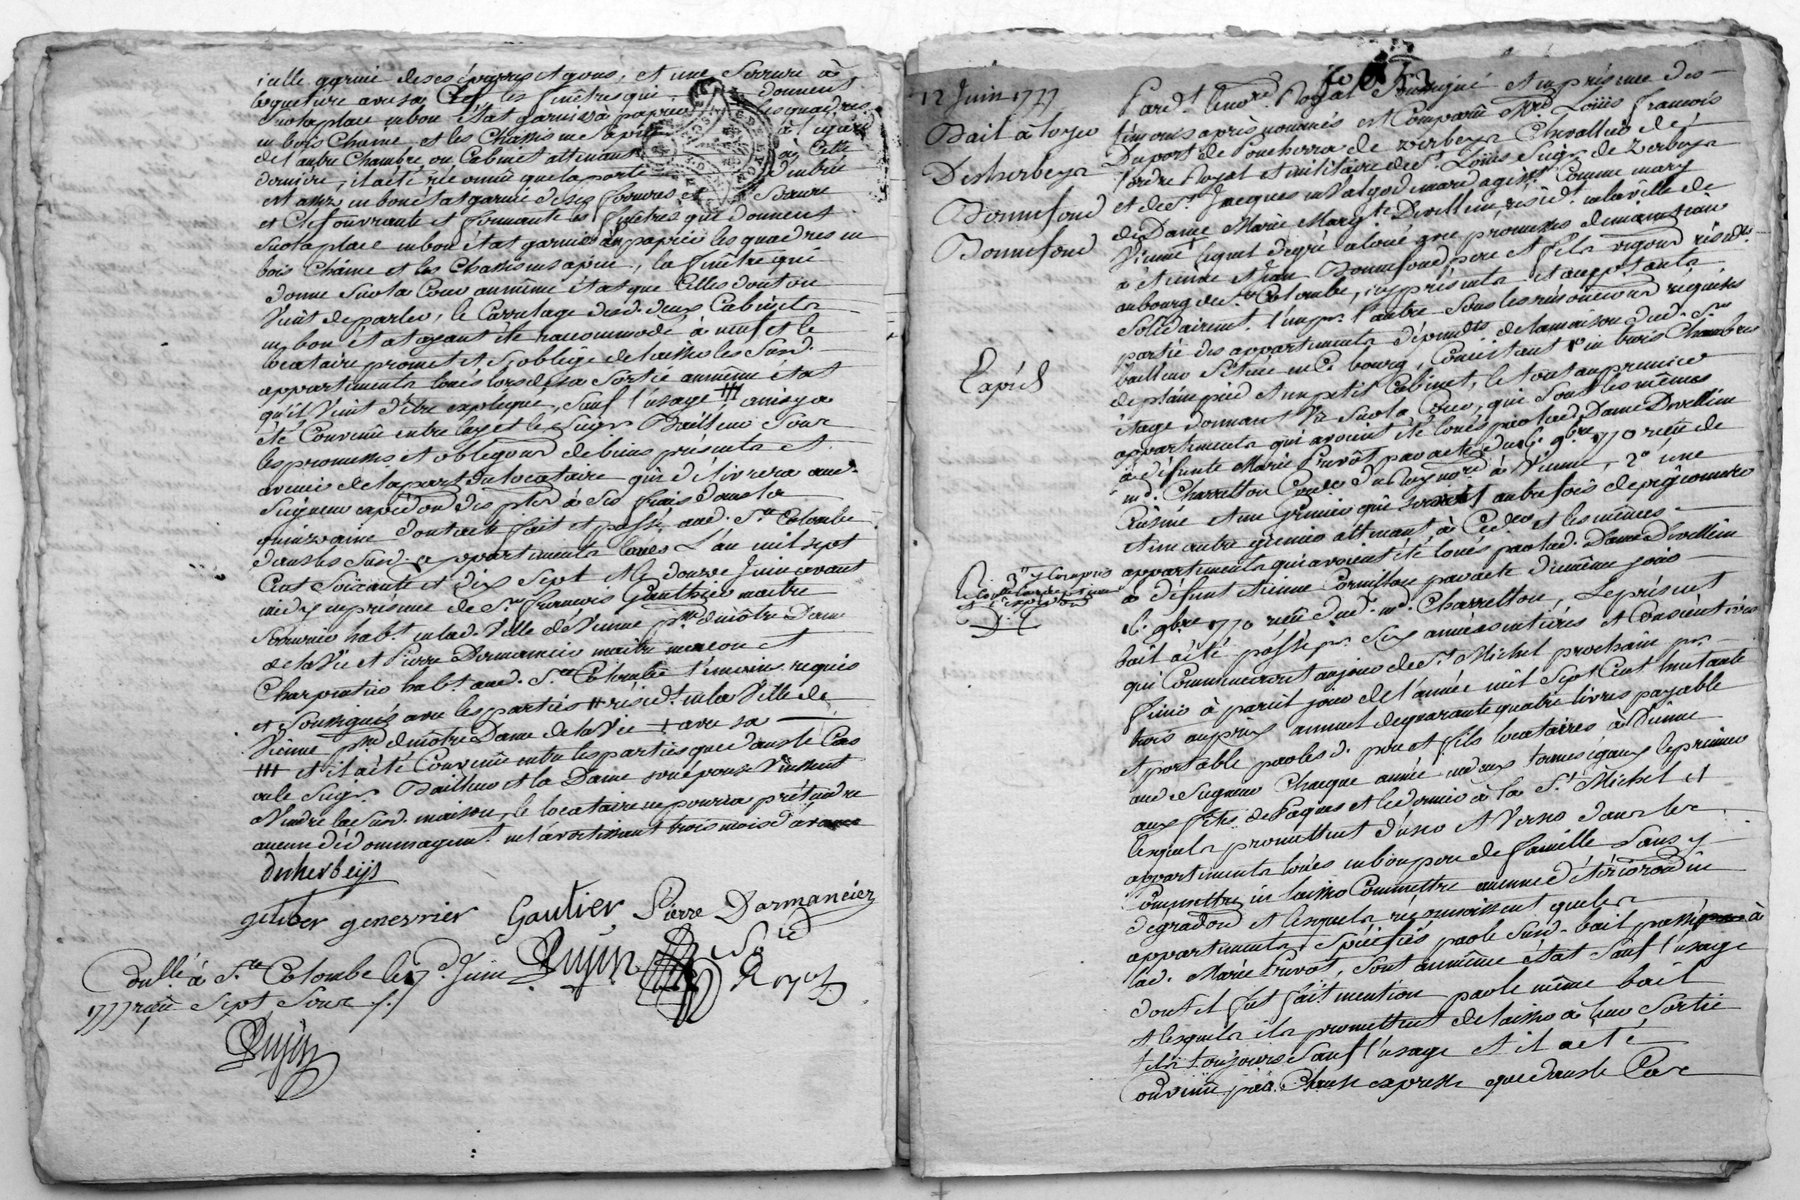 icelle garnie de ses éparres et gons, et une serrure à
loqueture avec sa clef les fenêtres qui donnent
sur la place en bon état garnies à papier les quadres
en bois chaine, et les chassis en sapin à l'égard
de l'autre chambre ou cabinet attenant à cette
derniere, il a été reconnu que la porte d'entrée
est assez en bon état garnie de ses ferrures et serrure
et clef ouvrante et fermante les fenêtres qui donnent
sur la place en bon état garnies en papier les quadres en
bois chaine et les chassis en sapin, la fenêtre qui
donne sur la cour au même état que celles dont on
vient de parler, le carrelage desd. deux cabinets
en bon état ayant été racommodé à neuf et le
locataire promet et s'oblige de laisser les susd.
appartements loués lors de sa sortie au même état
qu'il vient d'être expliqué, sauf l'usage ainsy a
été convenu entre luy et le seigr. bailleur sous
les promesses et obligaons de biens présents et
avenir de la part du locataire qui délivrera aud.
seigneur expédition des ptes à ses frais dans la
quinzaine dont acte fait et passé aud. Ste Colombe
dans les susd. appartements loués l'an mil sept
cent soixante et dix sept et le douze juin avant
midy en présence de Sr. françois Gauthier maitre
serrurier habt. en lad. ville de Vienne psse de nôtre Dame
de la Vie et Pierre Dormancier maitre maçon et
charpentier habt. aud. Ste Colombe témoins requis
et soussignés avec les parties # résidt. en la ville de
Vienne psse de nôtre Dame de la Vie + avec sa
### et il a été convenu entre les parties que dans le cas
ou le seigr. Bailleur et la Dame son épouse vinssent
a vendre la susd. maison, le locataire ne pourra prétendre
aucun dédommagemt. en l'avertissant trois mois d'avance
duherbeijs
genevrier Gautier Pierre Dormancier
Dujin
Conllé à Ste Colombe le juin
1777 reçu sept sous
Dujin
fo 52
12 Juin 1777
Bail à loyer
Desherbeys
à
Bonnefond
Bonnefond
Expédié
Par dt. le no.re Royal soussigné et en présence des
témoins après nommés est comparu Mre Loüis françois
Duport de Poncharra de zerbeys Chevallier de
l'ordre Royal et militaire de St. Loüis Seigr. de zerbeys
et de St. Jacques en Valgodemard agisst. comme mary
de Dame Marie Margte Devillieu, résidt. en la ville de
Vienne lequel de gré a loué avec promesses de maintenir
à étienne et jean Bonnefond pere et fils résidts
au bourg de Ste Colombe, cy présents et acceptants
solidairemt. l'un pr l'autre sous les renonciaons requises
partie des appartements dépendts de la maison dud. Sr.
bailleur située en ce bourg, consistant 1° en trois chambres
de plain pied et un petit cabinet, le tout au premier
étage donnant sur la cour, qui sont les mêmes
appartements qui avoient été loués par lad. Dame Devillieu
à défunte Marie Privôt par acte du 6. 9bre 1770 reçu de
md. Charretton no.re à Vienne, 2° une
cuisine et un grenier qui servoit autrefois de pigeonnier
et un autre grenier attenant à ce der et les mêmes
3° y compris
appartements qui avoient été loués par lad. Dame Devillieu
à défunt étienne Cornillon par acte du même jour
6. 9bre 1770 reçu dud. md. Charretton, Le présent
bail a été passé pr. six années entières et consécutives
qui commenceront au jour de St. Michel prochain pr.
finir à pareil jour de l'année mil sept cent huitante
trois au prix annuel de quarante quatre livres payable
et portable par lesd. pere et fils locataires à Vienne
aud. seigneur chaque année en deux termes égaux le premier
aux fêtes de Paques et le dernier à la St. Michel et
lesquels promettent d'user et verser dans les
appartements loués en bon pere de famille sans y
commettre ni laisser commettre aucune détérioraon ni
dégradaon et lesquels reconnoissent que les
appartements spécifiés par le susd. bail passé à
lad. Marie Privôt, sont au même état sauf l'usage
dont il fut fait mention par le même bail
et lesquels ils promettent de laisser à leur sortie
tels toujours sauf l'usage et il a été
convenu par clause expresse que dans le cas